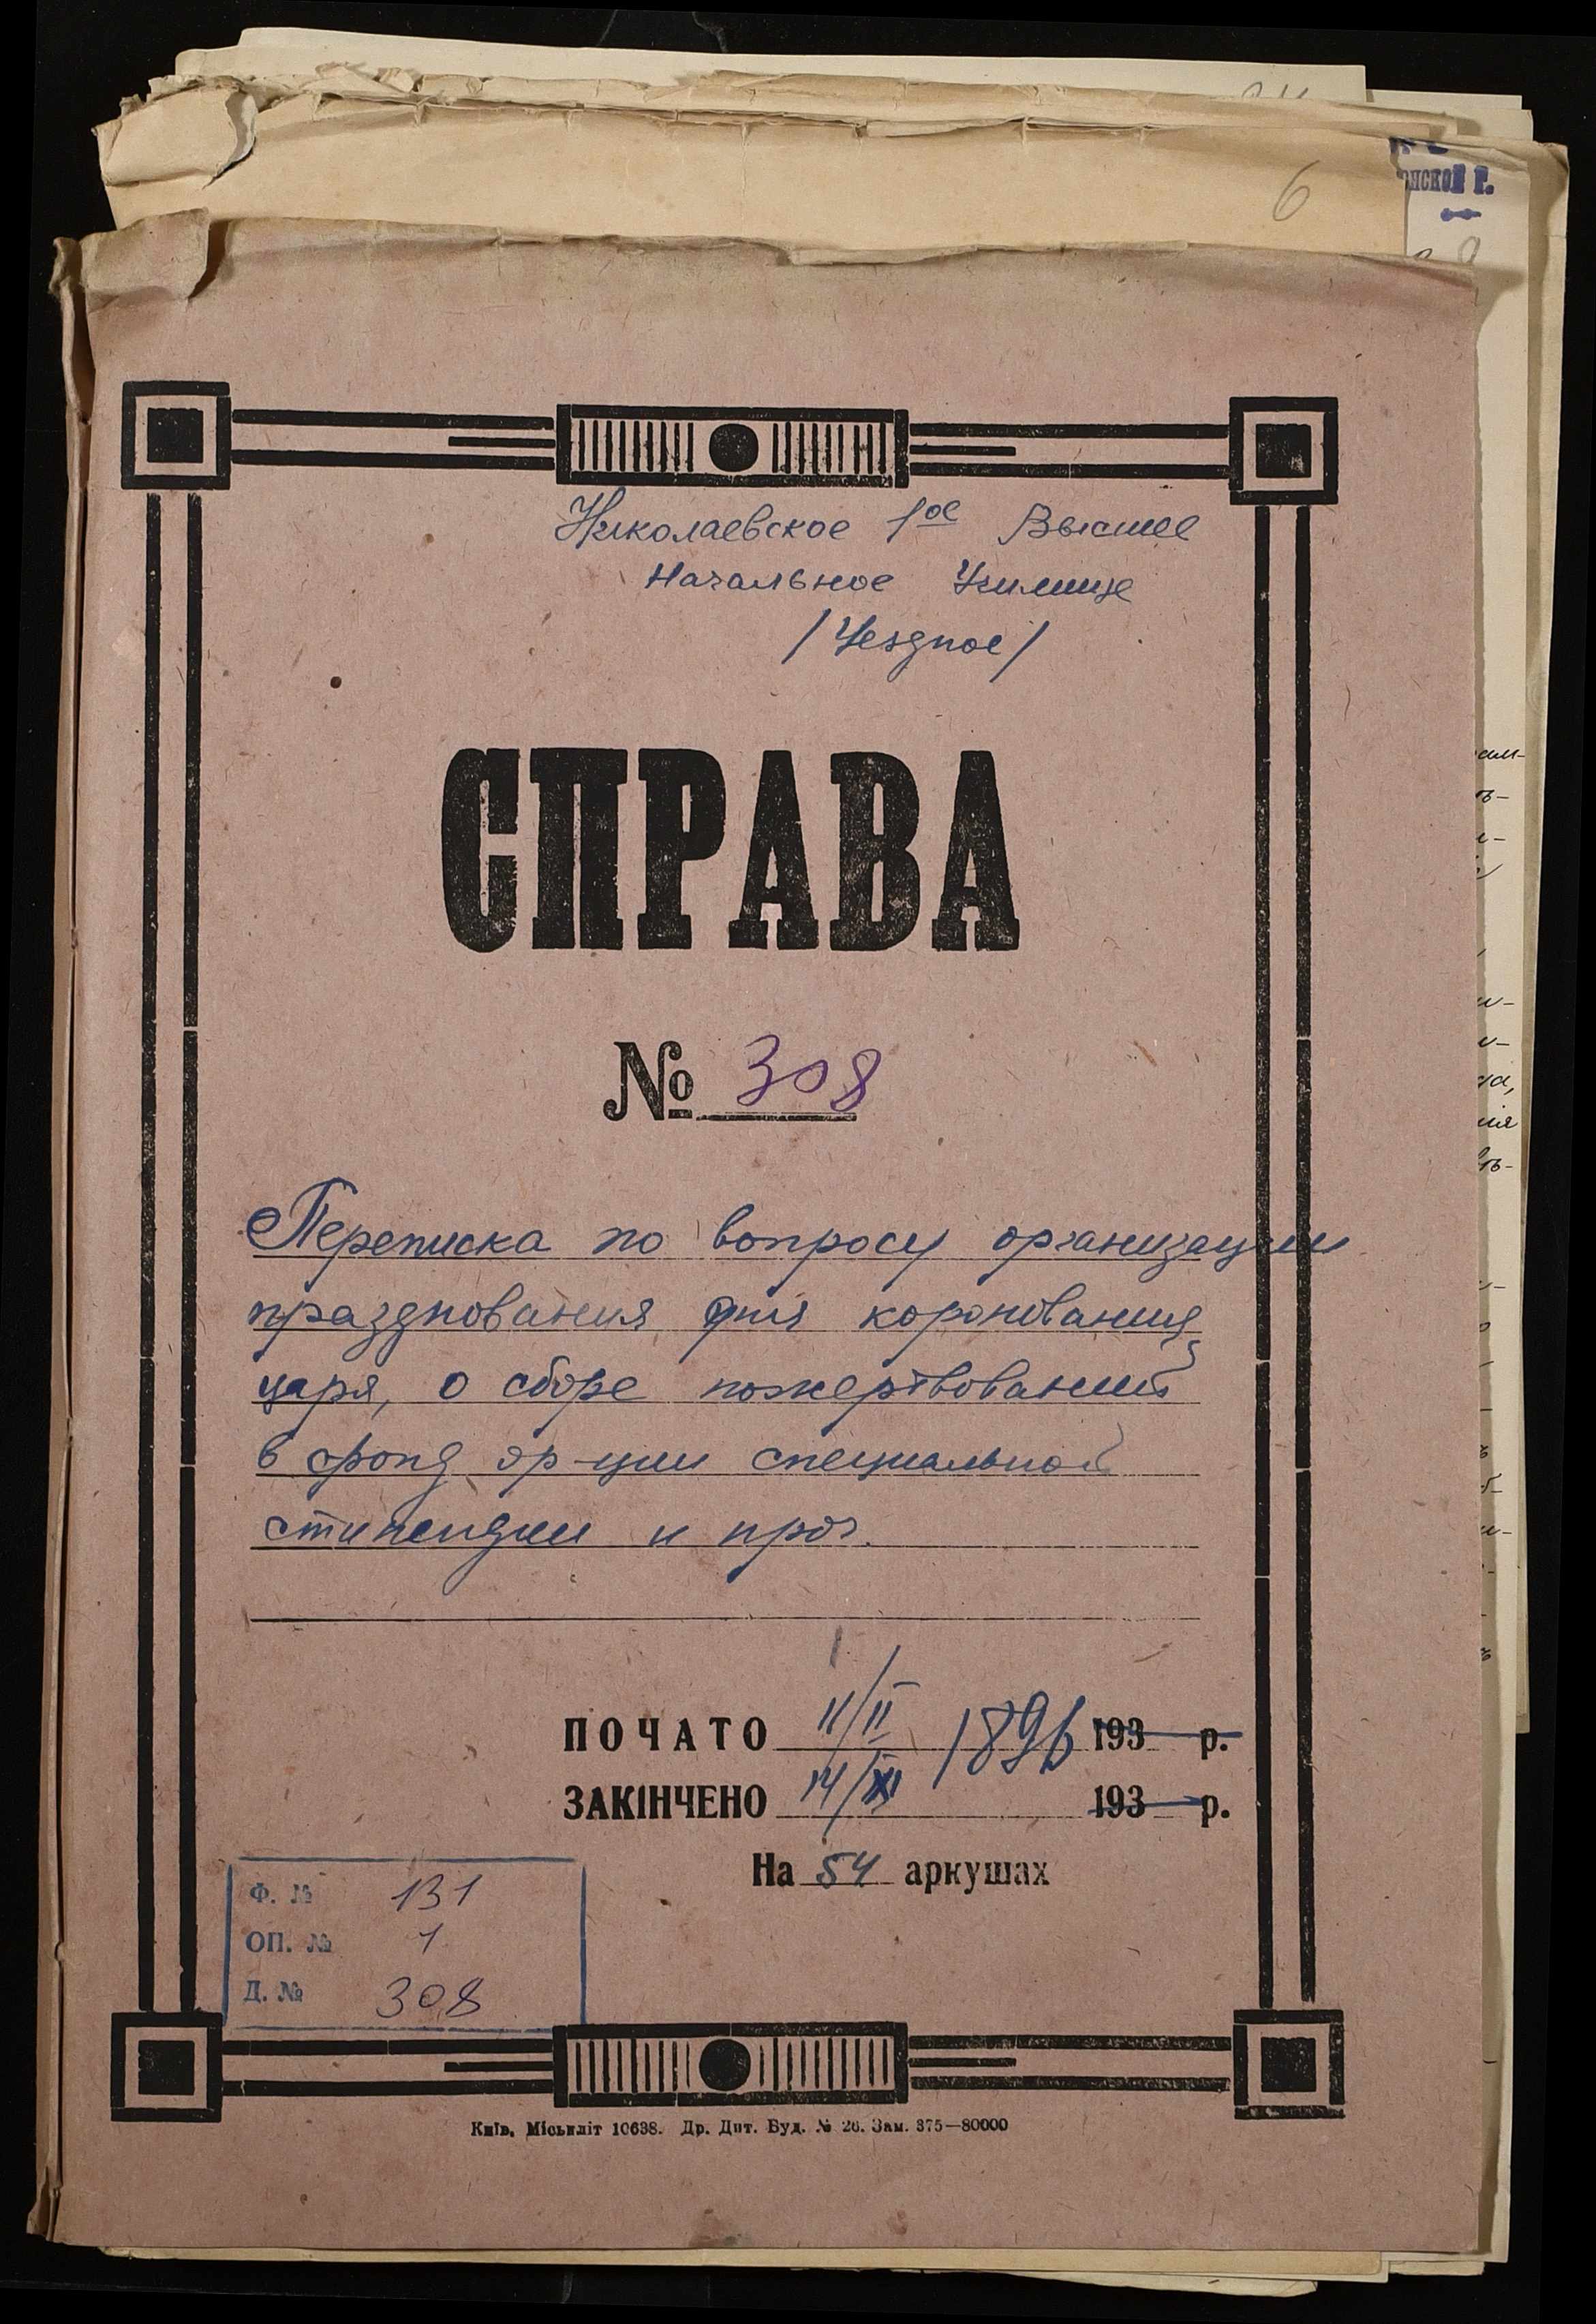 6
нской г.
Николаевское 1ое Высшее
Начальное Училище
/Уездное/
СПРАВА
№ 308
Переписка по вопросу организации
празднования дня коронования
царя, о сборе пожертвований
в фонд ор-ции специальной
стипендии и проч.
ПОЧАТО 11/II 1896 193 р.
ЗАКІНЧЕНО 14/XI 193 р.
На 54 аркушах
Ф. № 131
ОП. № 1
Д. № 308
Київ. Міськліт 10638. Др. Дит. Буд. № 26. Зам. 375—80000